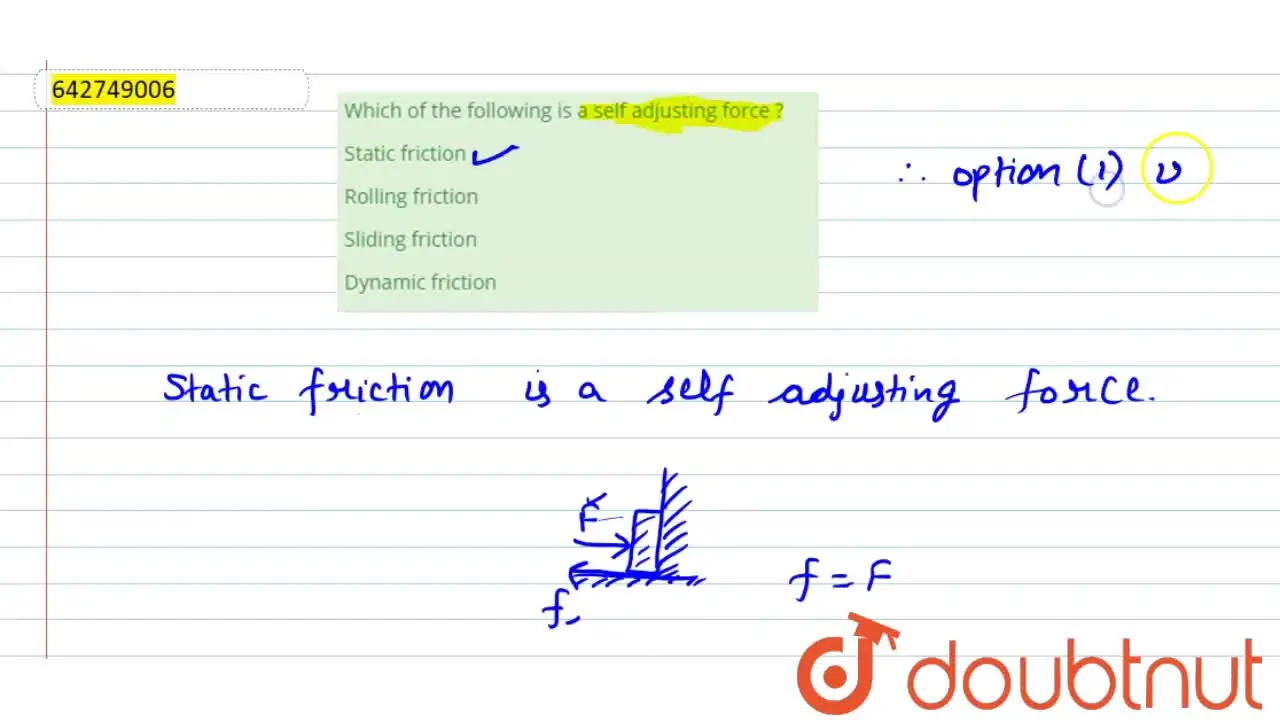 642749006
Which of the following is a self adjusting force ?
Static friction
Rolling friction
Sliding friction
Dynamic friction
∴ option (1)
Static friction is a self adjusting force.
F
f
f = F
doubtnut